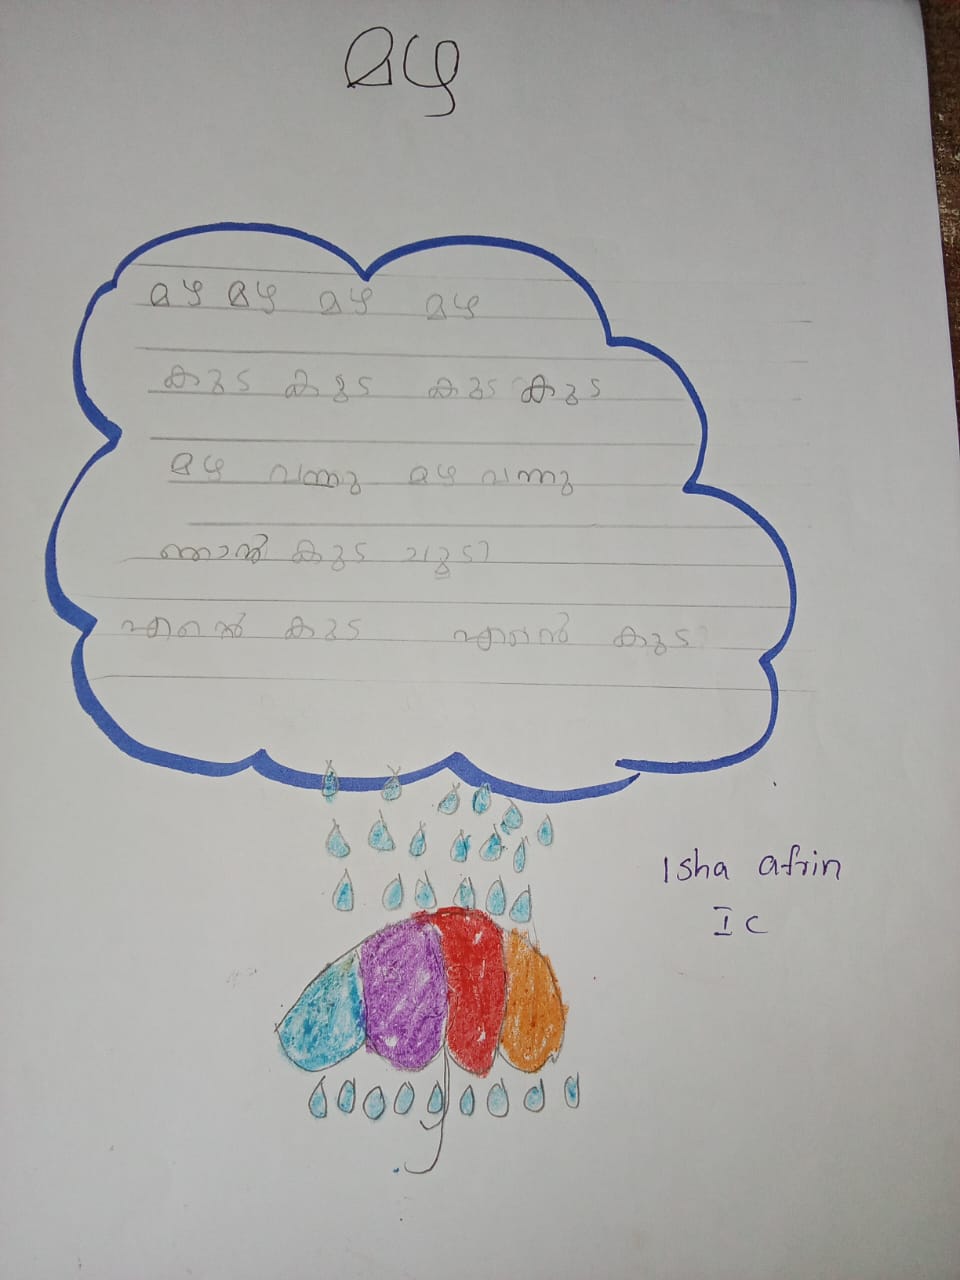 മഴ
മഴ മഴ മഴ മഴ
കുട കുട കുട കുട
മഴ വന്നു മഴ വന്നു
ഞാൻ കുട ചൂടി
എൻെറ കുട എൻെറ കുട
Isha afrin
I C